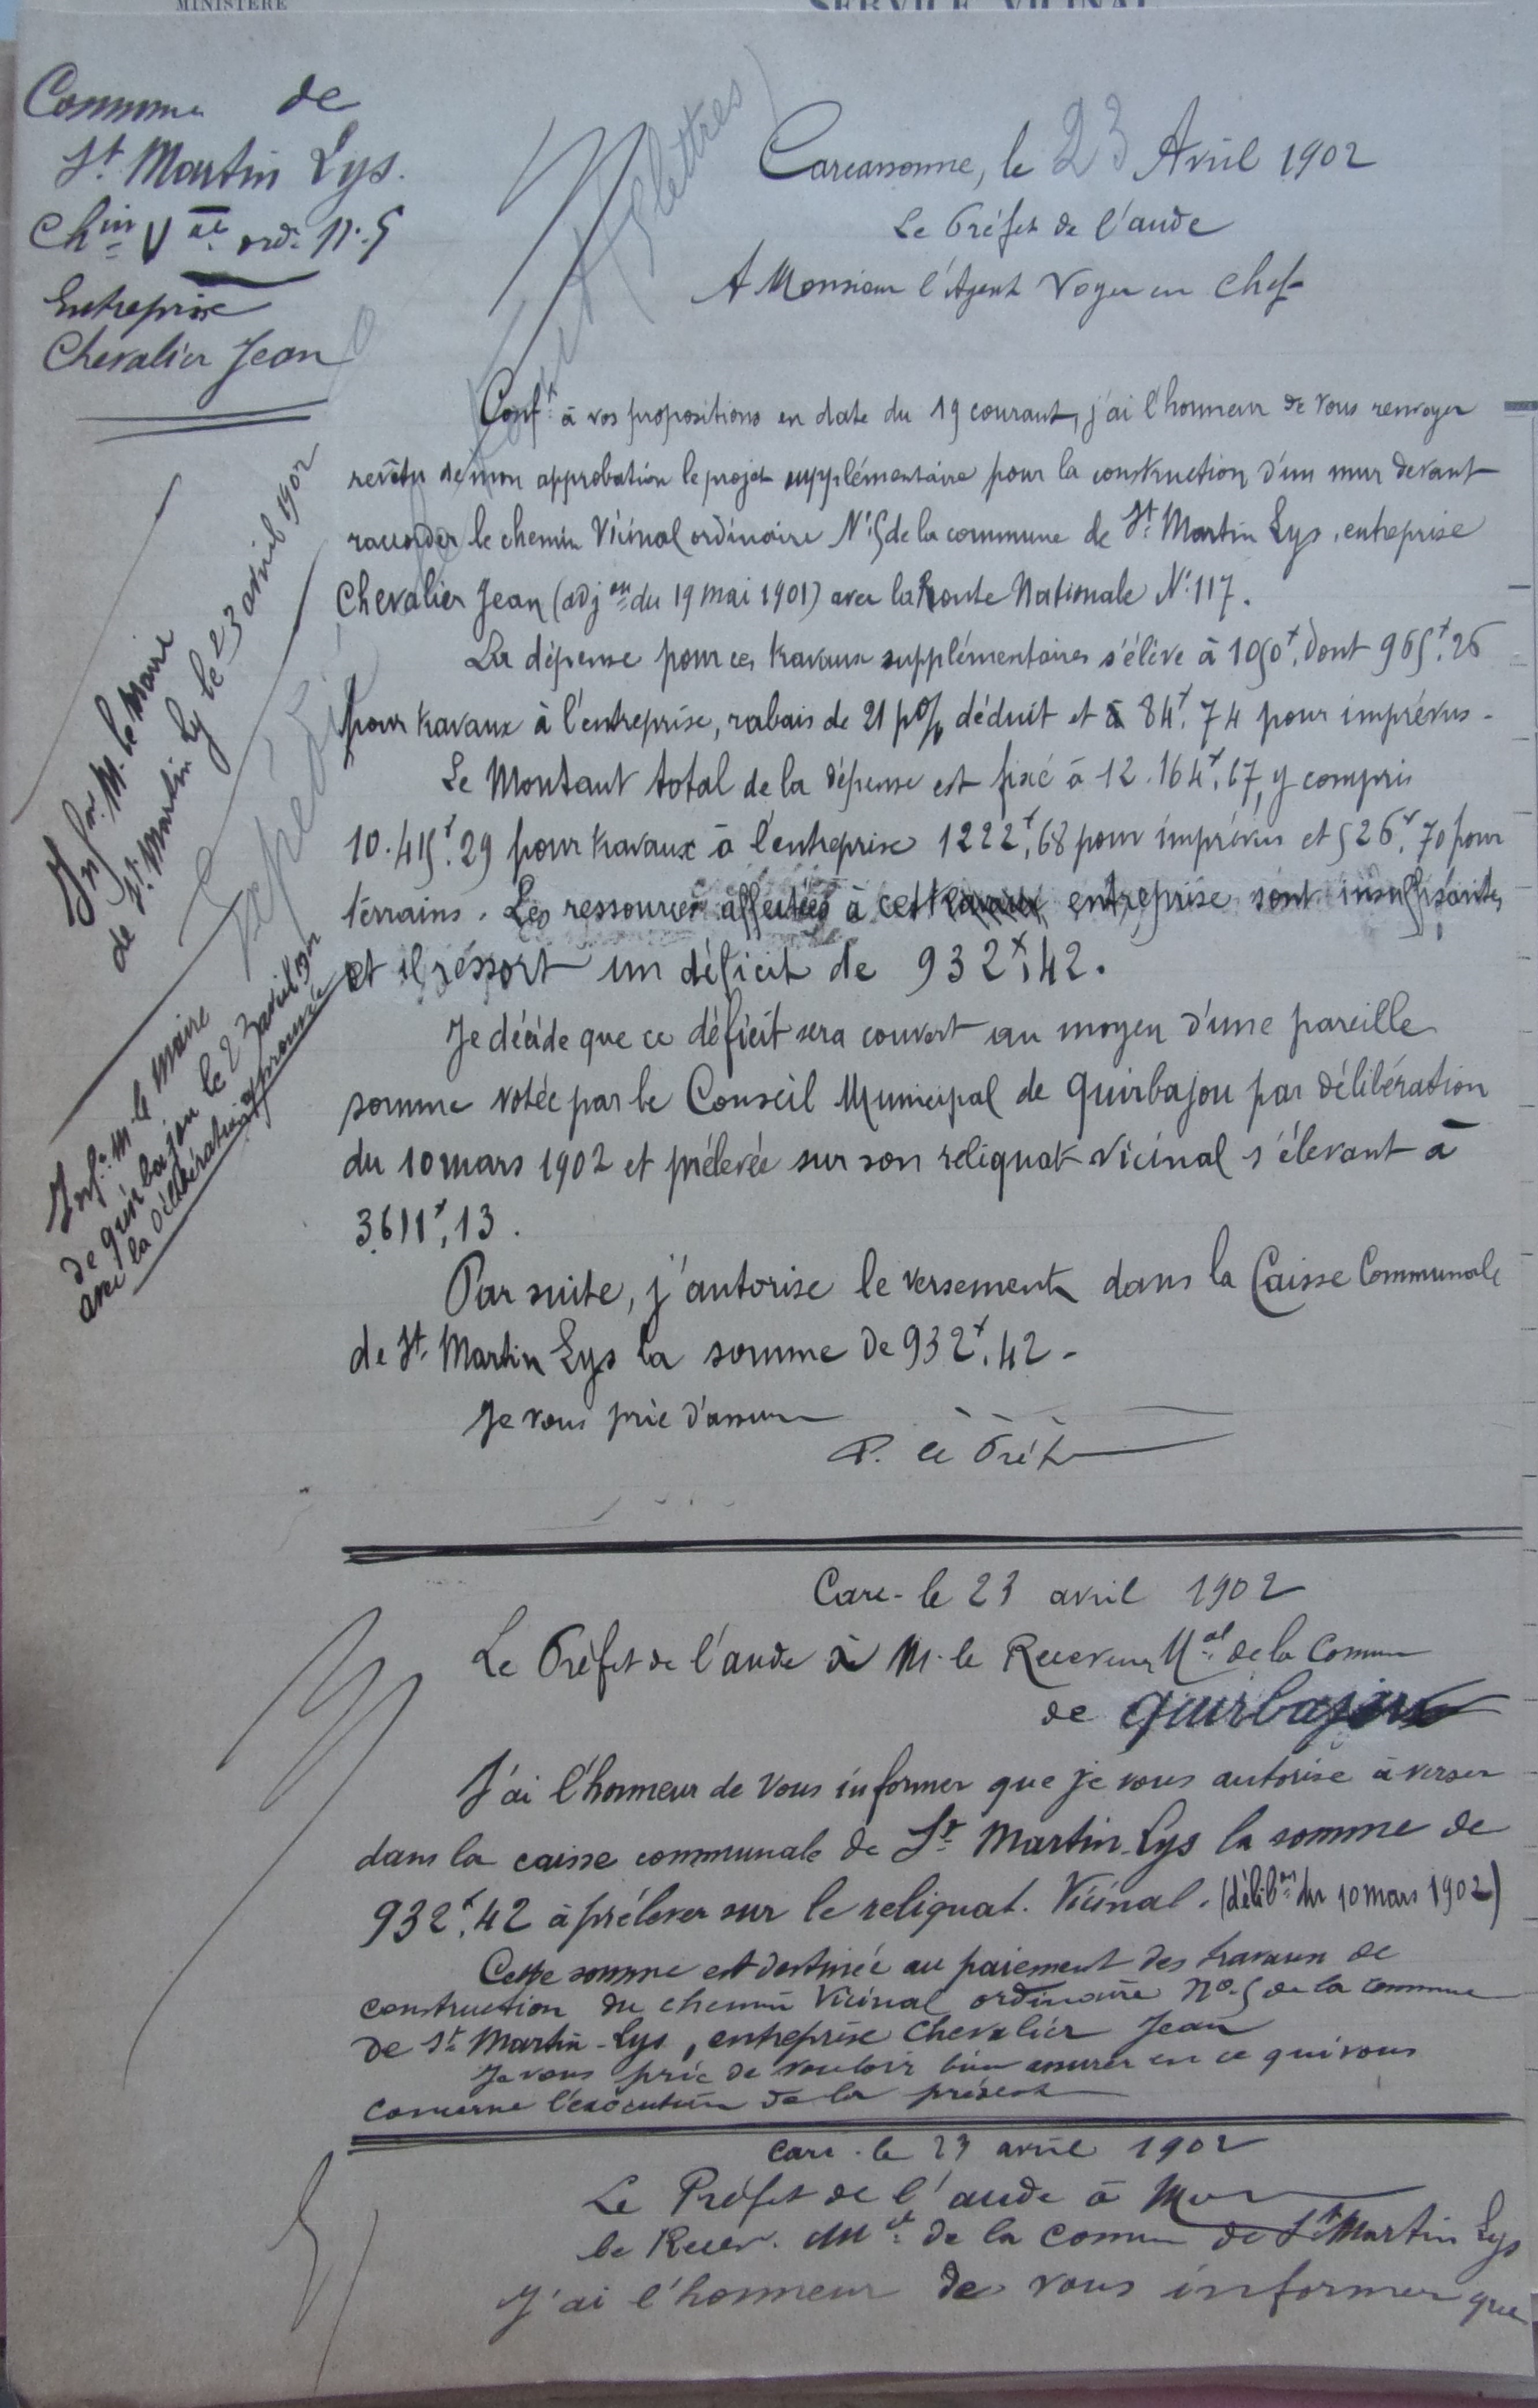 MINISTÈRE
SERVICE VICINAL
Commune de
St Martin Lys.
Chin Val ord. N° 5
Entreprise
Chevalier Jean
Carcassonne, le 23 Avril 1902
Le Préfet de l'aude
A Monsieur l'Agent Voyer en Chef
Conft à vos propositions en date du 19 courant, j'ai l'honneur de vous renvoyer
revêtu de mon approbation le projet supplémentaire pour la construction d'un mur devant
raccorder le chemin Vicinal ordinaire N° 5 de la commune de St Martin Lys, entreprise
Chevalier Jean (adjon du 19 mai 1901) avec la Route Nationale N° 117.
La dépense pour ces travaux supplémentaires s'élève à 1050f, dont 965f,26
pour travaux à l'entreprise, rabais de 21 p% déduit et à 84f,74 pour imprévus.
Le Montant total de la dépense est fixé à 12.164f,67, y compris
10.415f.29 pour travaux à l'entreprise 1222f,68 pour imprévus et 526f,70 pour
terrains. Les ressources affectées à cet travaux entreprise sont insuffisantes,
et il ressort un déficit de 932f,42.
Je décide que ce déficit sera couvert au moyen d'une pareille
somme votée par le Conseil Municipal de Quirbajou par délibération
du 10 mars 1902 et prélevée sur son reliquat vicinal s'élevant à
3.611f,13.
Par suite, j'autorise le versement dans la Caisse Communale
de St. Martin Lys la somme de 932f.42 -
Je vous prie d'assurer
P. le Préfet
Infor. M. le Maire
de St. Martin Lys le 23 avril 1902
Expédié
Infor. M. le Maire
de Quirbajou le 23 avril 1902
avec la délibération approuvée
Carc. le 23 avril 1902
Le Préfet de l'aude à M. le Receveur Mal de la Commune
de Quirbajou
J'ai l'honneur de vous informer que je vous autorise à verser
dans la caisse communale de St Martin-Lys la somme de
932f.42 à prélever sur le reliquat. Vicinal. (délibon du 10 mars 1902)
Cette somme est destinée au paiement des travaux de
construction du chemin Vicinal ordinaire No. 5 de la commune
de St Martin-Lys, entreprise Chevalier Jean
Je vous prie de vouloir bien assurer en ce qui vous
concerne l'exécution de la présente
Carc. le 23 avril 1902
Le Préfet de l'aude à Mon
le Recev. Mal de la Comune de St Martin Lys
J'ai l'honneur de vous informer que